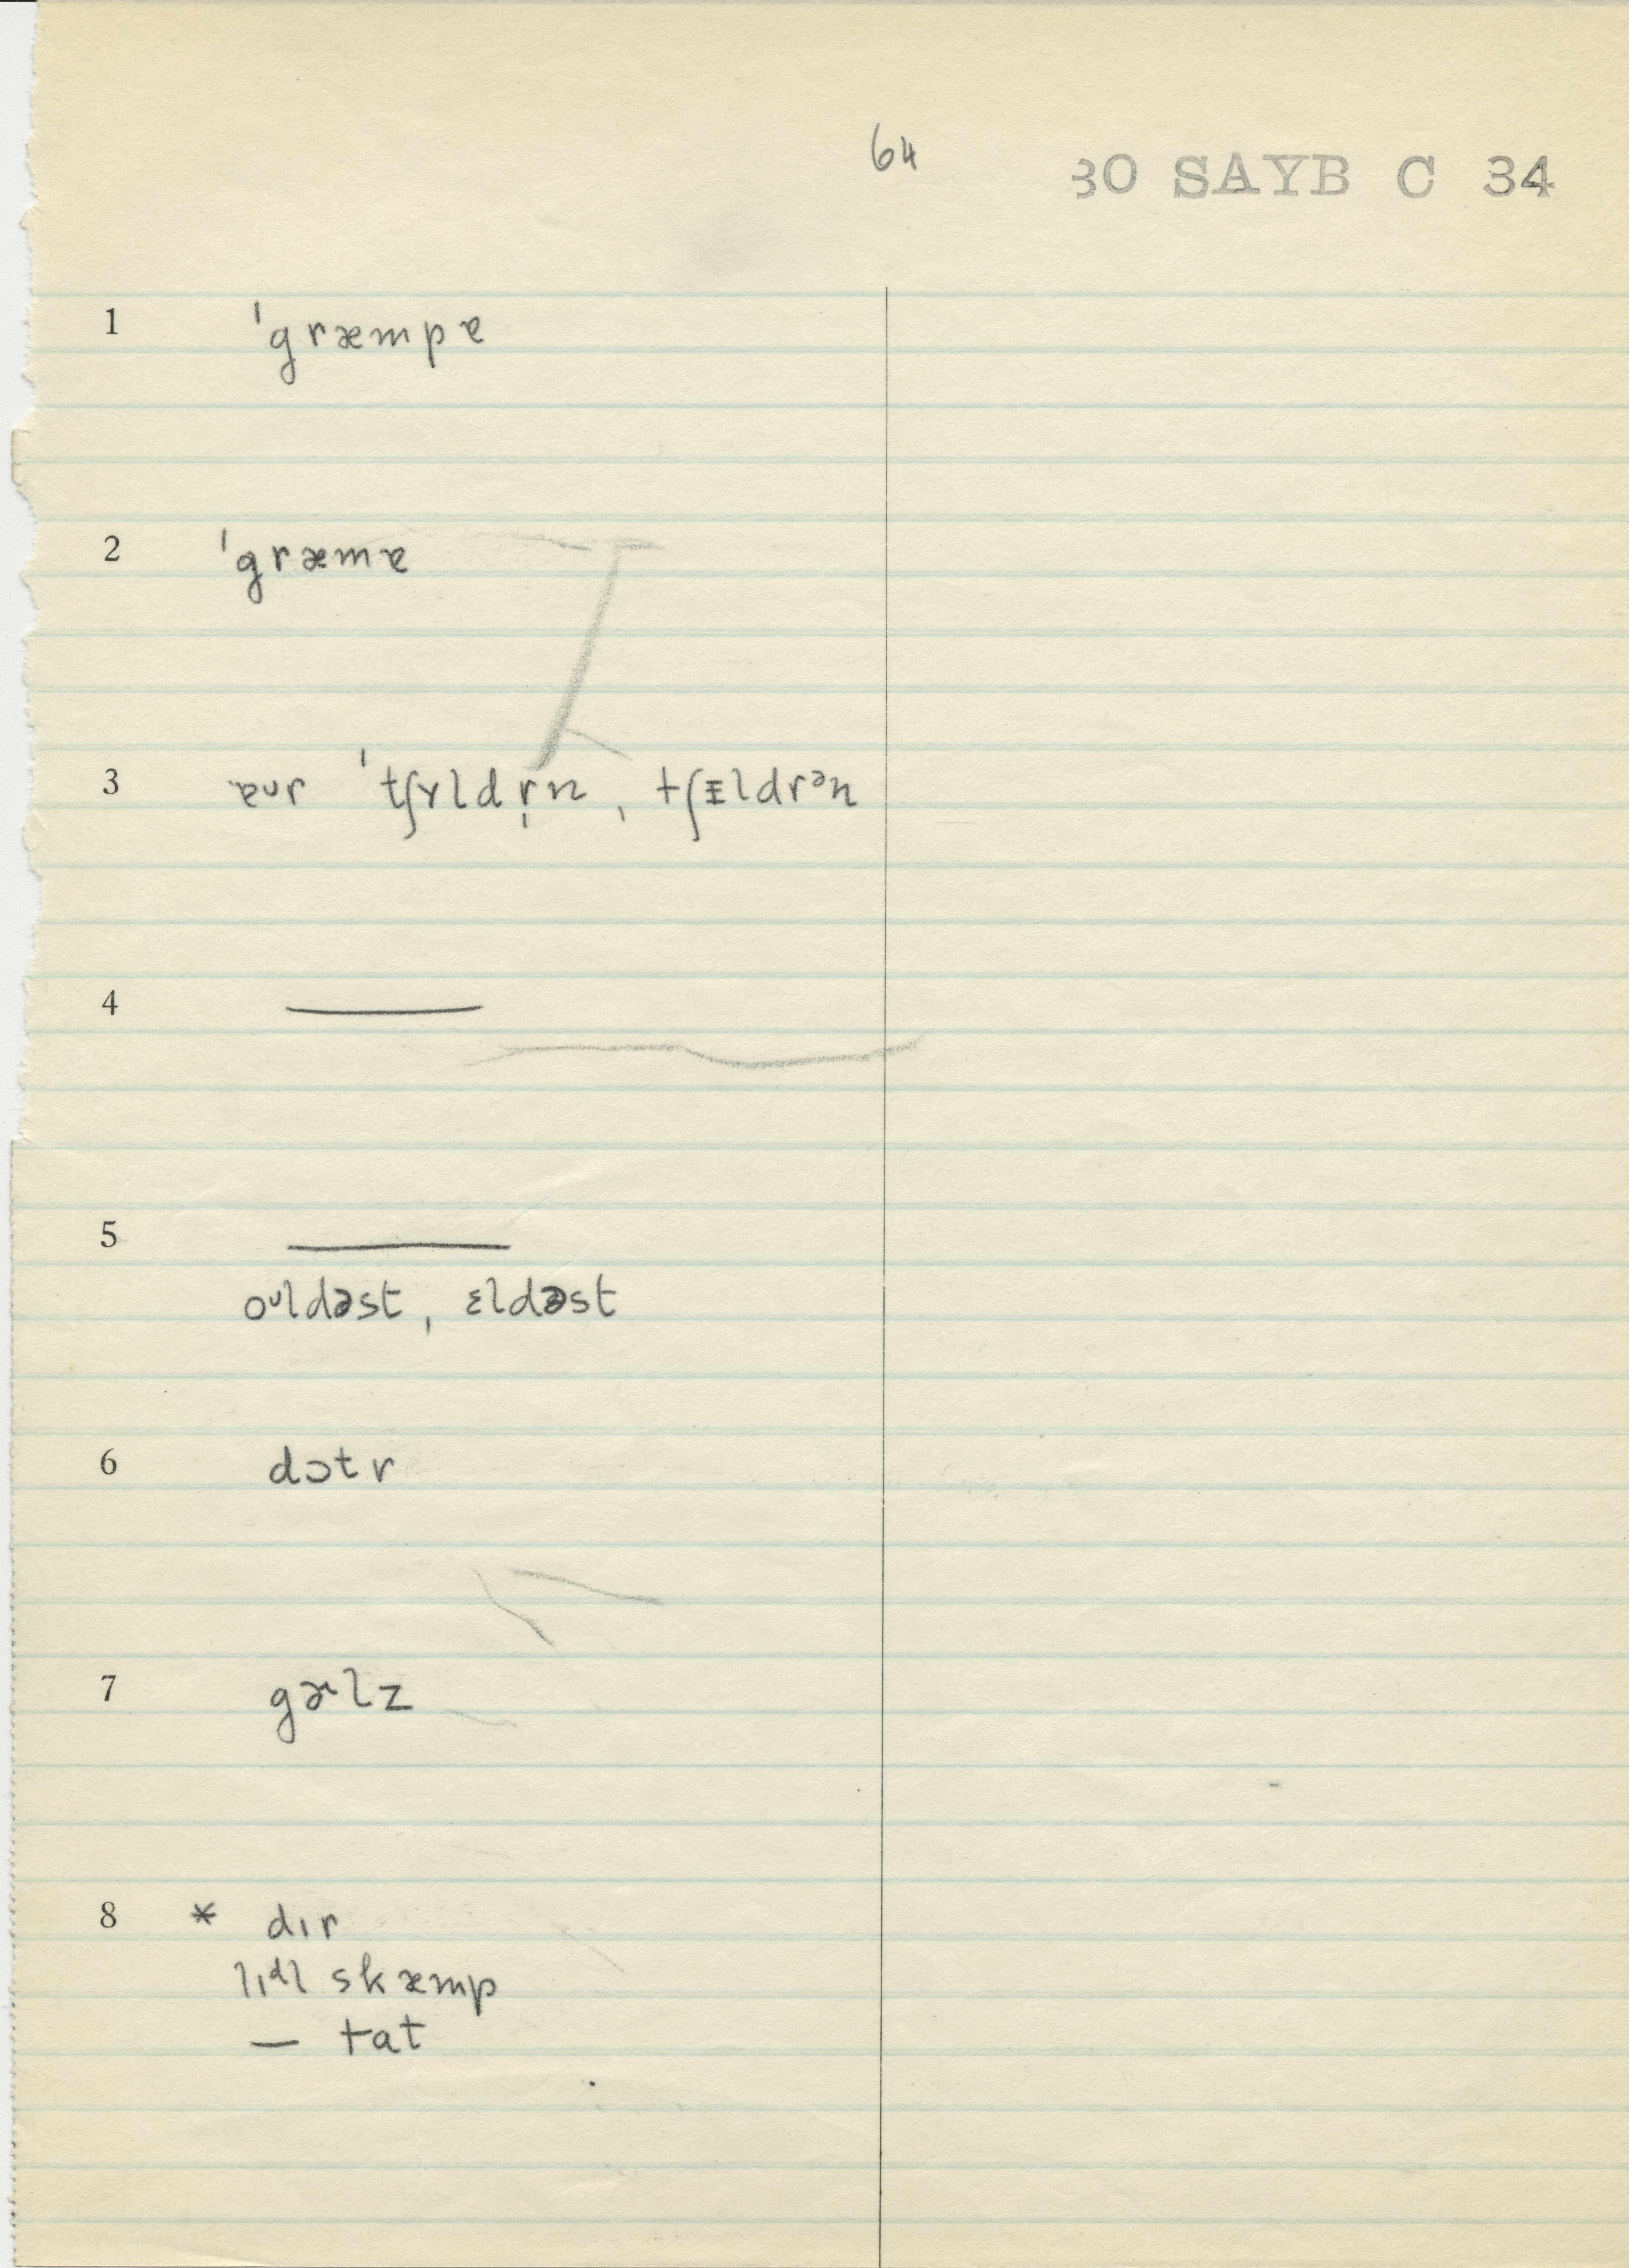 64
30 SAYB C 34
1 ˈgræmpɐ
2 ˈgræmɐ
3 ɐur ˈtʃɤldr̩n, tʃɪ̵ldrᵊn
4 ———
5 ———
oᶷldəst, ɛldəst
6 dɔtr
7 gɚlz
8 * dɪr
lɪᵈl skæmp
— tat